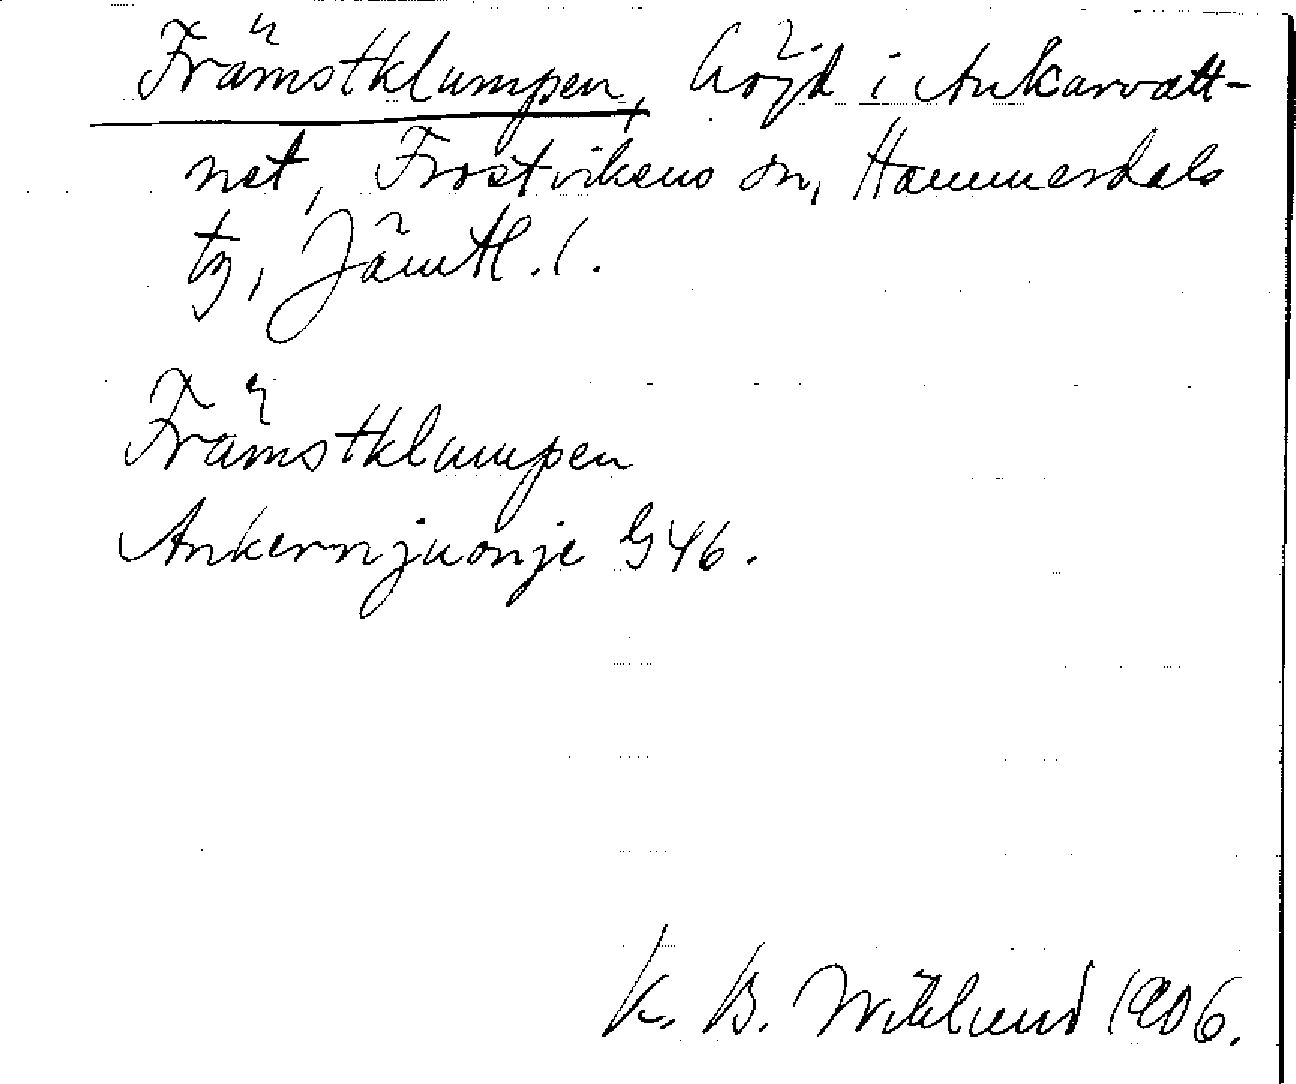 Främstklumpen, höjd i Ankarvatt-
net, Frostvikens sn, Hammerdals
tg, Jämtl. l.
Främstklumpen
Ankernjuonje G 46.
K. B. Wiklund 1906.